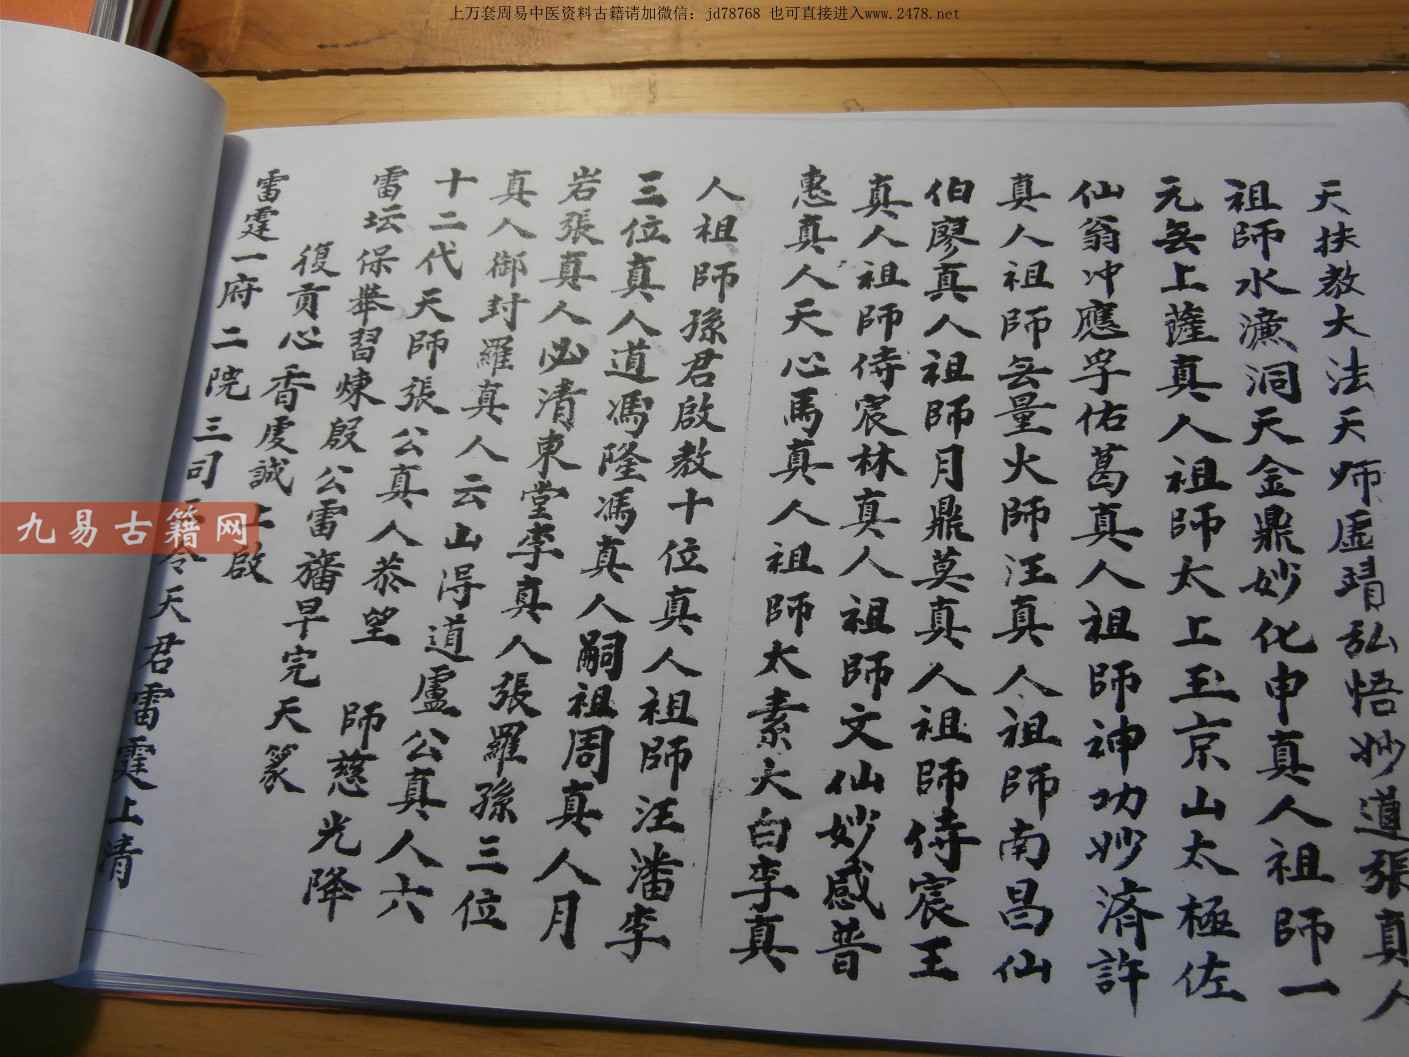 上万套周易中医资料古籍请加微信：jd78768 也可直接进入www.2478.net
天扶教大法天师虚靖弘悟妙道張真人
祖師水濂洞天金鼎妙化申真人祖師一
元無上薩真人祖師太上玉京山太極佐
仙翁冲應孚佑葛真人祖師神功妙済許
真人祖師無量火師汪真人祖師南昌仙
伯廖真人祖師月鼎莫真人祖師侍宸王
真人祖師侍宸林真人祖師文仙妙感普
惠真人天心馬真人祖師太素大白李真
人祖師孫君啟教十位真人祖師汪潘李
三位真人道馮隆馮真人嗣祖周真人月
岩張真人必清東堂李真人張羅孫三位
真人御封羅真人云山淂道盧公真人六
十二代天師張公真人恭望 師慈光降
雷坛保舉習煉殷公雷旛早完天篆
復貢心香虔誠上啟
雷霆一府二院三司 天君雷霆上清
九易古籍网